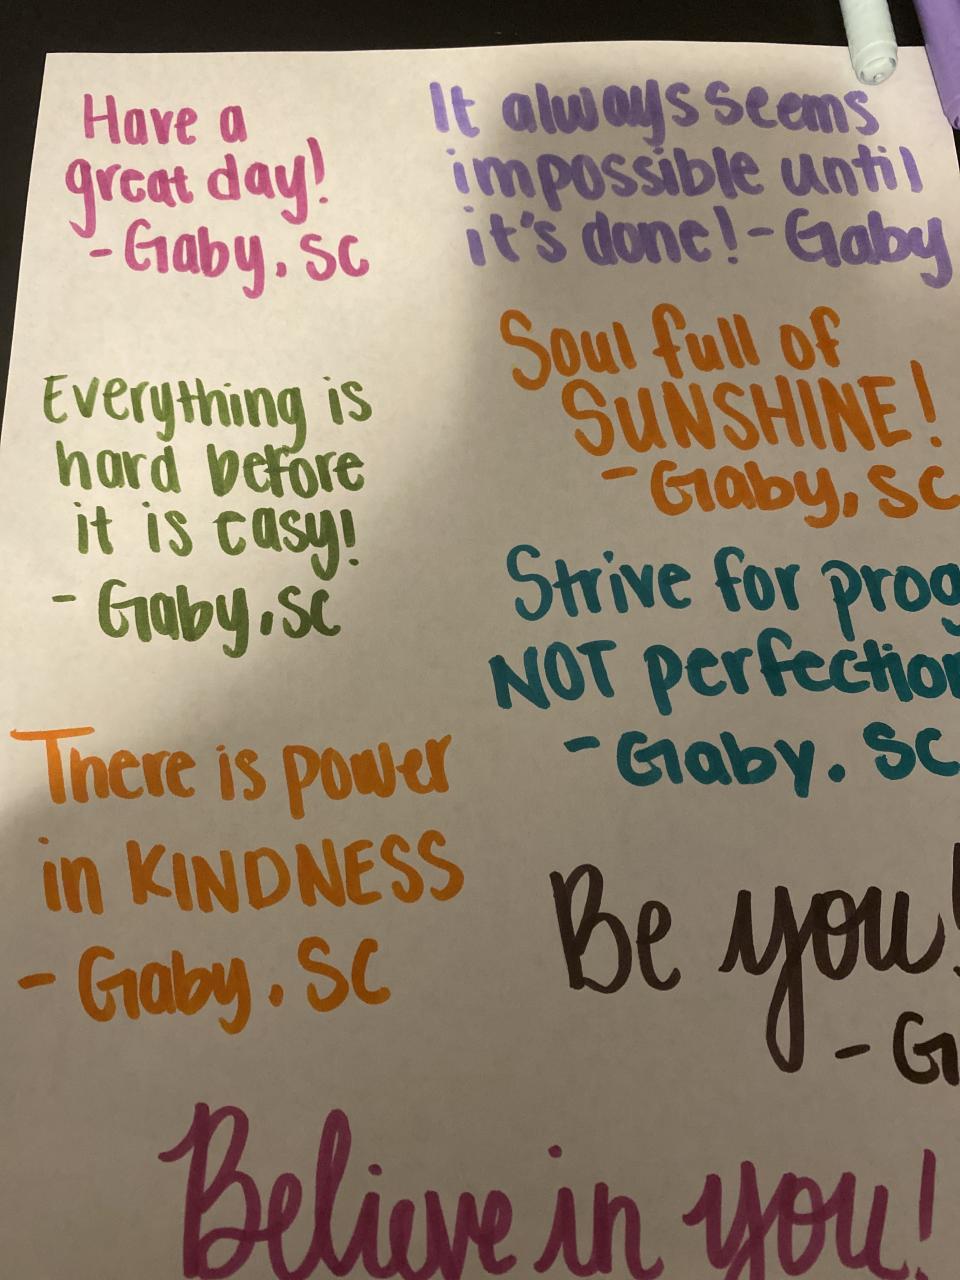 Have a
great day!
- Gaby, SC
It always seems
impossible until
it's done! - Gaby
Everything is
hard before
it is easy!
- Gaby, SC
Soul full of
SUNSHINE!
- Gaby, SC
Strive for prog
NOT perfection
- Gaby. SC
There is power
in KINDNESS
- Gaby. SC
Be you!
- G
Believe in you!